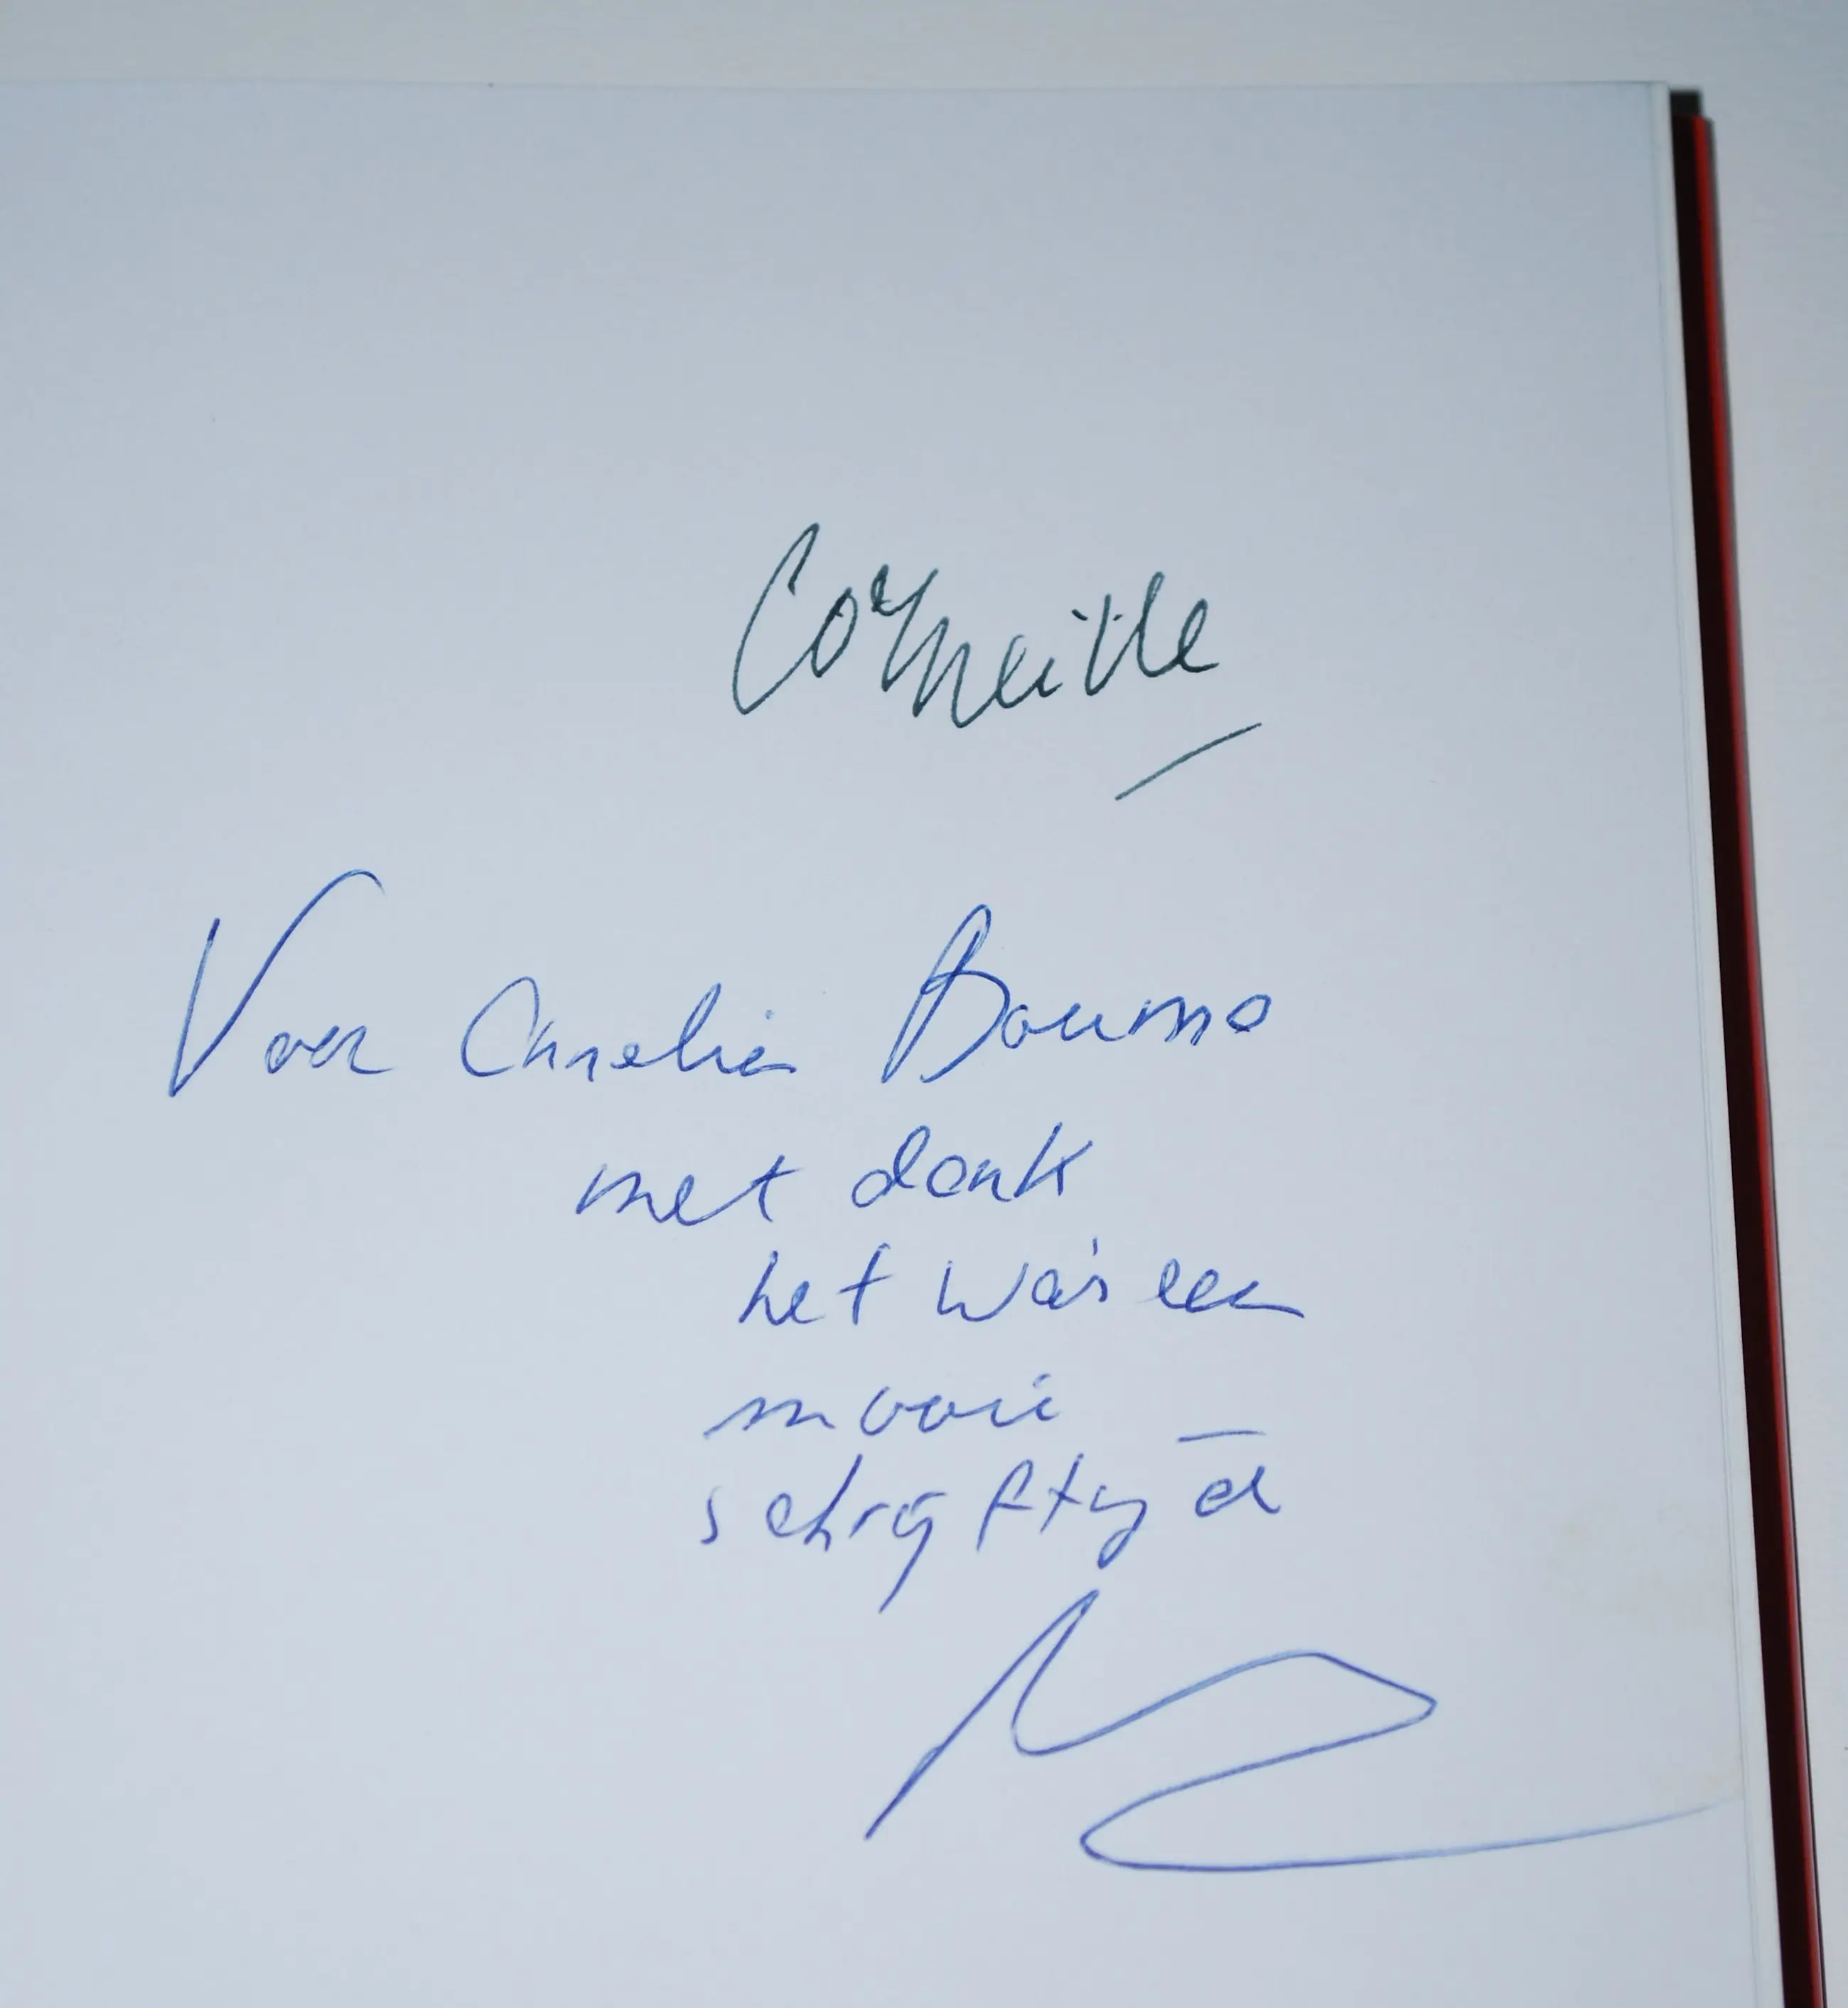 Corneille
Voor Bouma
met dank
het was een
mooie
schrijftijd